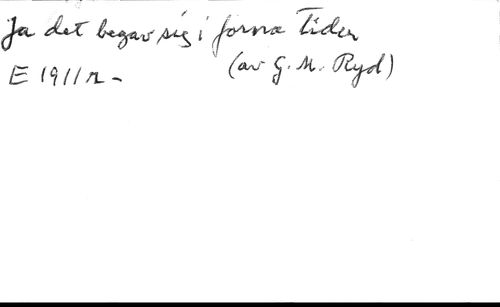 Ja det begav sig i forna tider
E 1911 r -
(av G. M. Ryd)